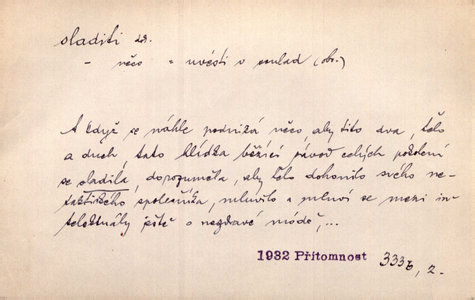 sladiti zd.
– něco = uvésti v soulad (obr.)
A když se náhle podniká něco, aby tito dva, tělo
a duch, tato klidka běžící závod celých pokolení
se sladila, dorozuměla, aby tělo dohonilo svého ne-
taktického společníka, mluvilo a mluví se mezi in-
telektuály ještě o nezdravé módě, ...
1932 Přítomnost 333b, 2.